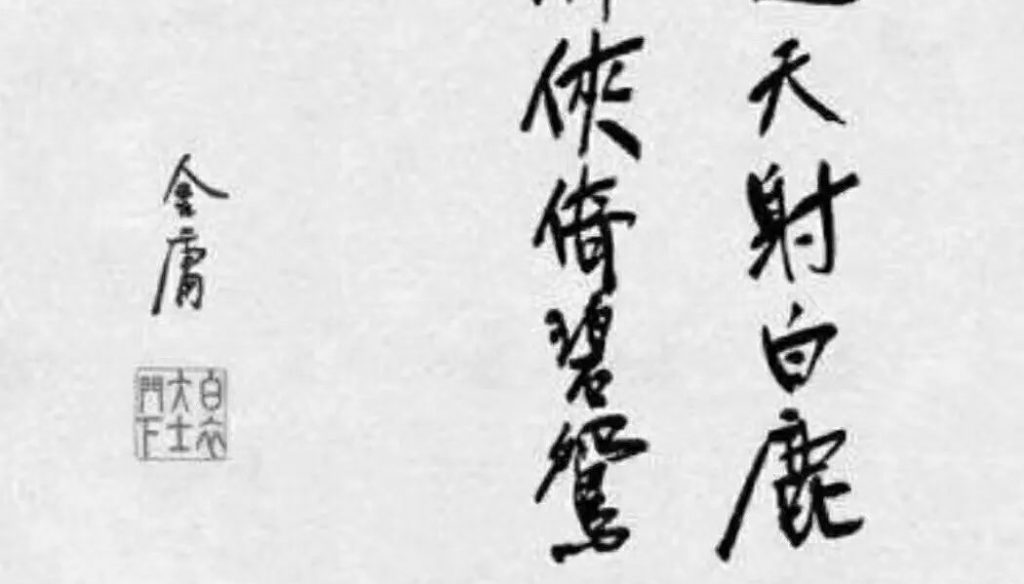 天射白鹿
俠倚碧鴛
金庸
白衣
大士
門下